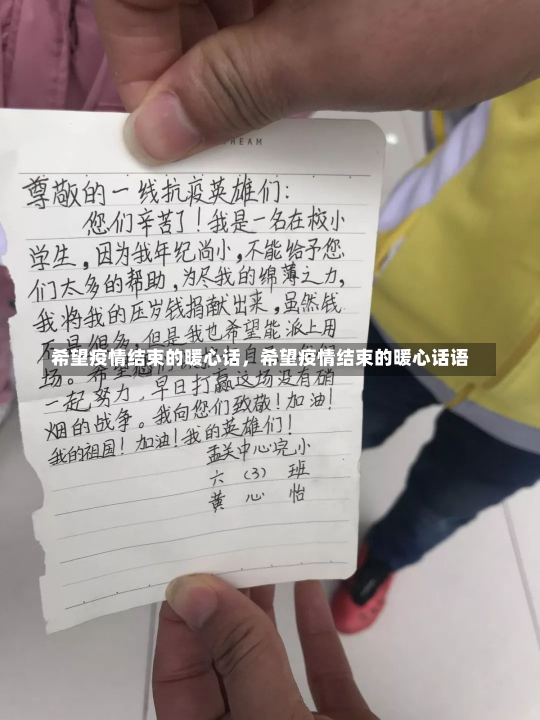 REAM
尊敬的一线抗疫英雄们:
您们辛苦了!我是一名在校小
学生,因为我年纪尚小,不能给予您
们太多的帮助,为尽我的绵薄之力,
我将我的压岁钱捐献出来,虽然钱
不是很多,但是我也希望能派上用
希望疫情结束的暖心话,希望疫情结束的暖心话语
场。希望您
一起努力,早日打赢这场没有硝
烟的战争。我向您们致敬!加油!
我的祖国!加油!我的英雄们!
孟关中心完小
六(3)班
黄心怡